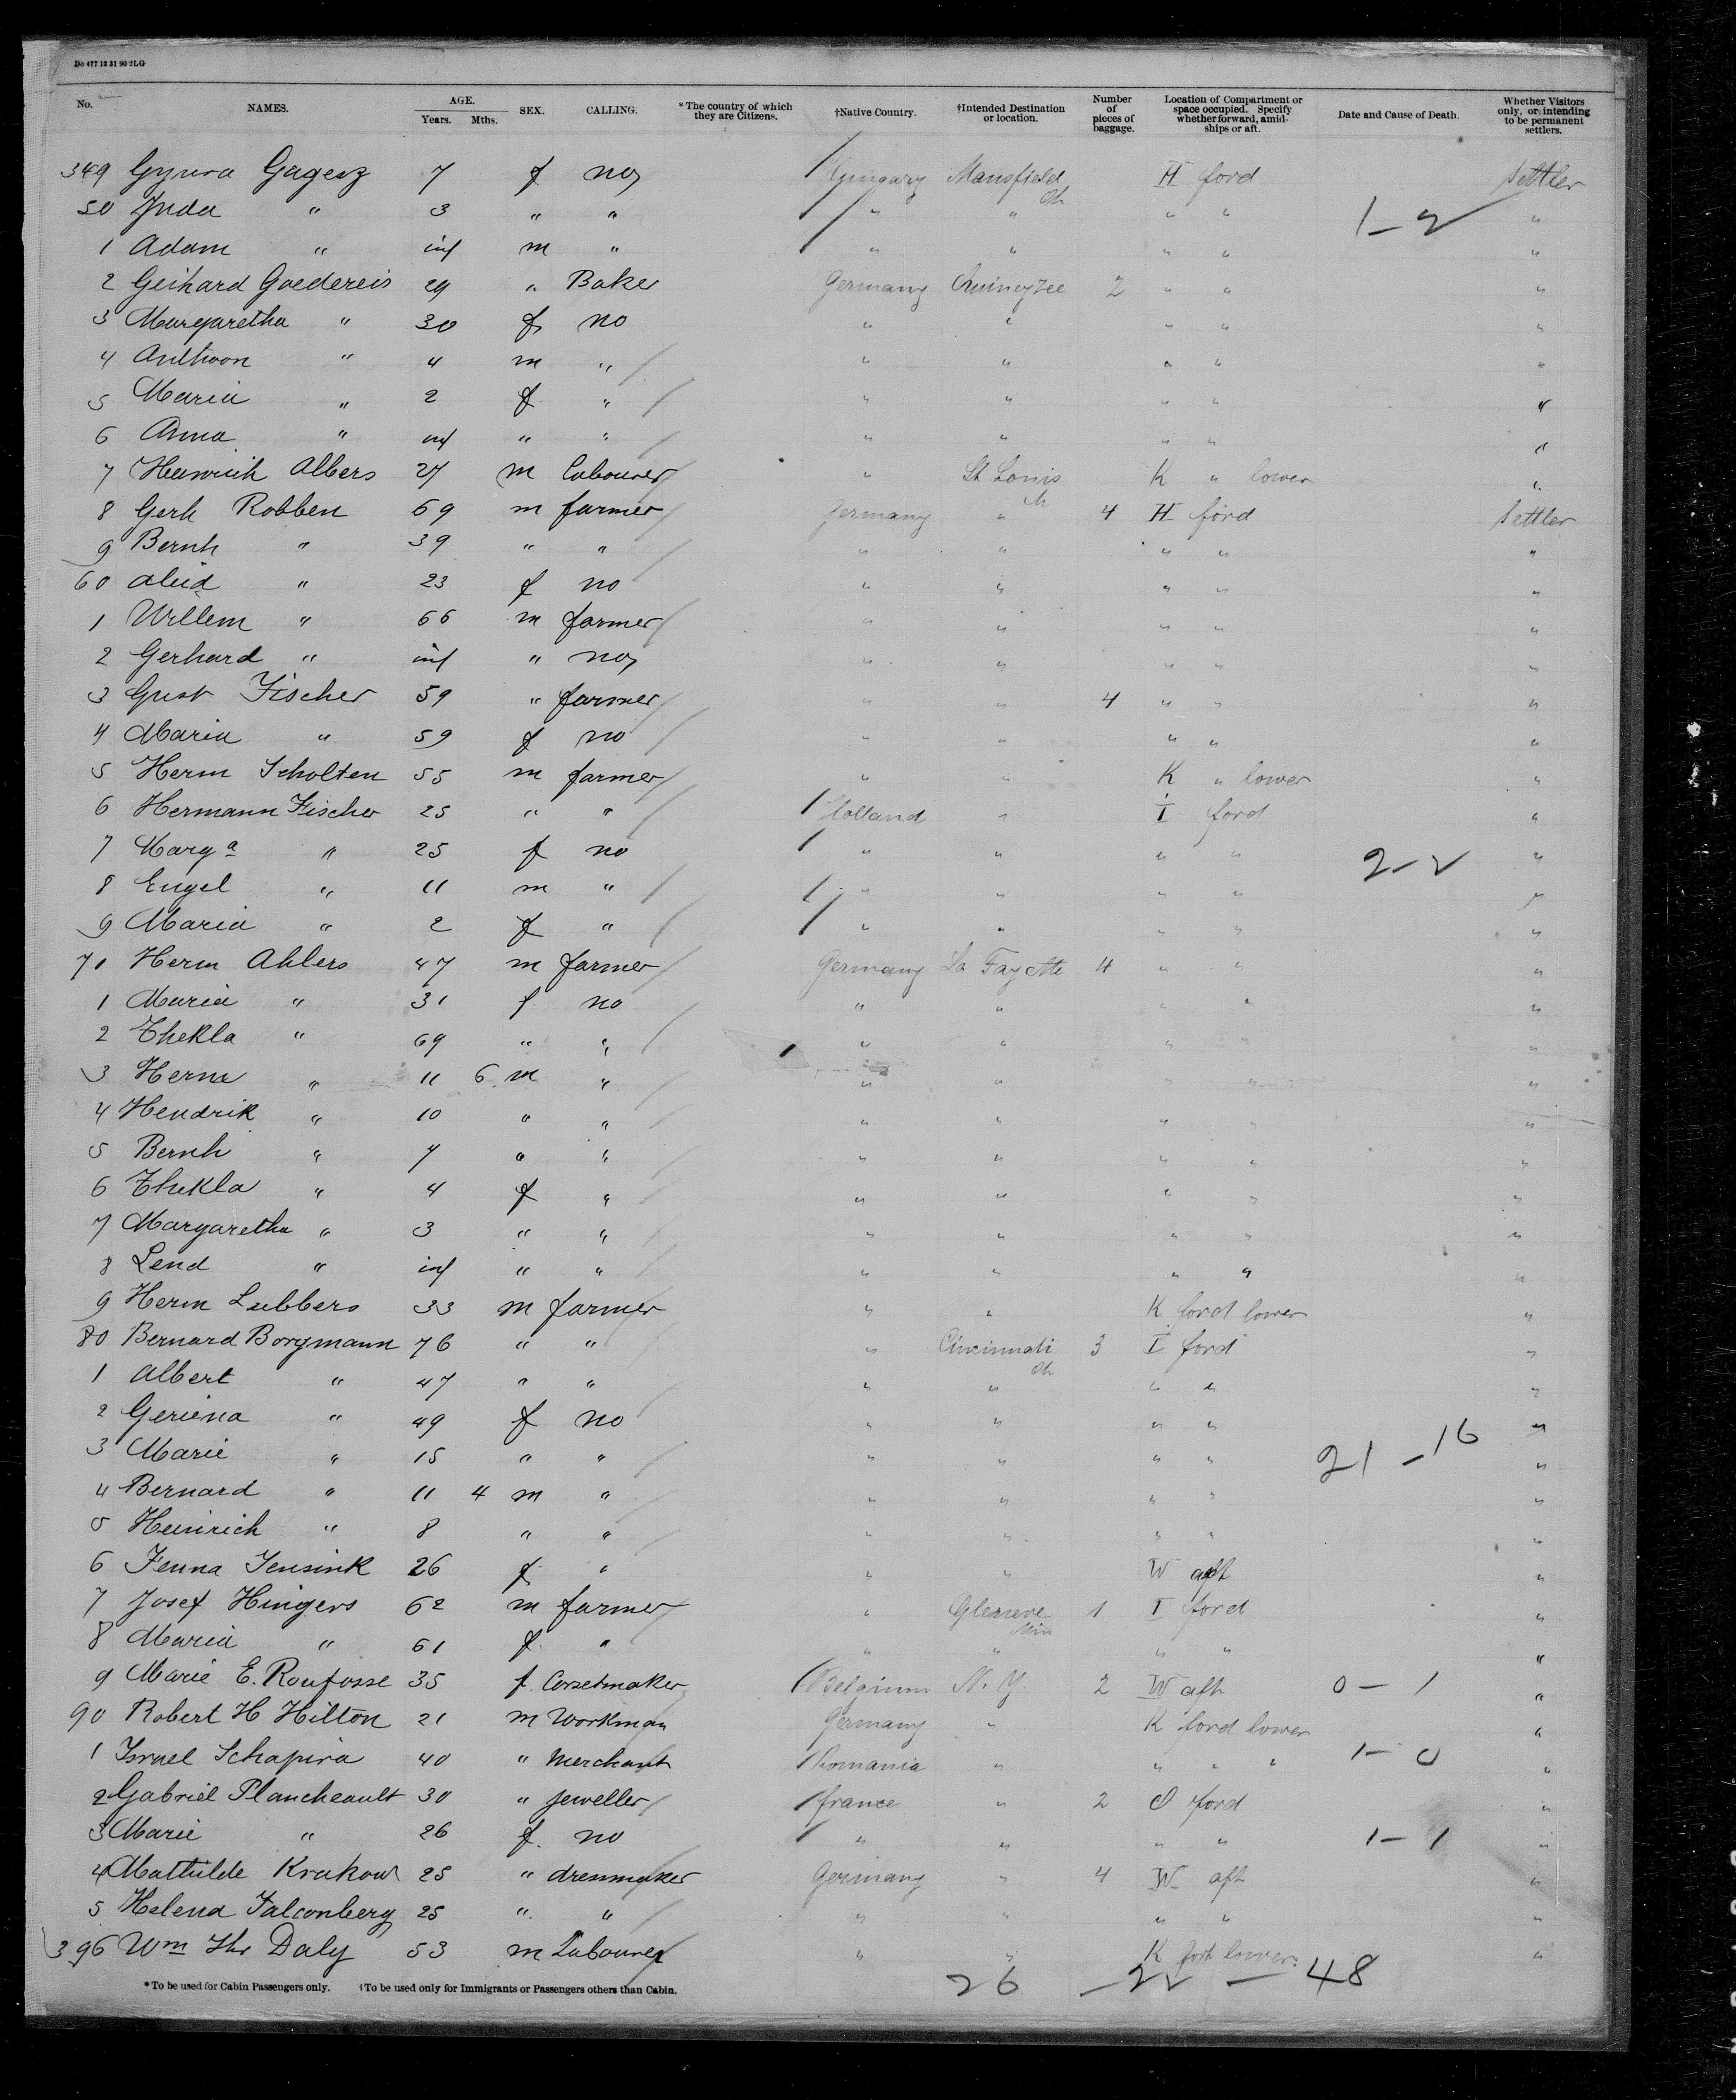 Do 477 12 31 90 2LG
No. NAMES. AGE. Years. Mths. SEX. CALLING. *The country of which they are Citizens. †Native Country. †Intended Destination or location. Number of pieces of baggage. Location of Compartment or space occupied. Specify whether forward, amidships or aft. Date and Cause of Death. Whether Visitors only, or intending to be permanent settlers.
349 Gyura Gagesz 7 f no Hungary Mansfield Oh H ford Settler
50 Juda " 3 " " " " " " 1-2 "
1 Adam " inf m " " " " " "
2 Gerhard Goedereis 29 " Baker Germany 2 " " "
3 Margaretha " 30 f no " " " " "
4 Anthoon " 4 m " " " " " "
5 Maria " 2 f " " " " " "
6 Anna " inf " " " " " " "
7 Heinrich Albers 27 m Labourer " St Louis K " lower "
8 Gerh Robben 69 m farmer Germany " 4 H ford Settler
9 Bernh " 39 " " " " " " "
60 Aleid " 23 f no " " " " "
1 Willem " 66 m farmer " " " " "
2 Gerhard " inf " no " " " " "
3 Gust Fischer 59 " farmer " " 4 " " "
4 Maria " 59 f no " " " " "
5 Herm Scholten 55 m farmer " " K " lower "
6 Hermann Fischer 25 " " Holland " I ford "
7 Marga " 25 f no " " " " 2-2 "
8 Engel " 11 m " " " " " "
9 Maria " 2 f " " " " " "
70 Herm Ahlers 47 m farmer Germany La Fayette 4 " " "
1 Maria " 31 f no " " " " "
2 Thekla " 69 " " " " " " "
3 Herm " 11 6 m " " " " " "
4 Hendrik " 10 " " " " " " "
5 Bernh " 7 " " " " " " "
6 Thekla " 4 f " " " " " "
7 Margaretha " 3 " " " " " " "
8 Lend " inf " " " " " " "
9 Herm Lubbers 33 m farmer " " K ford lower "
80 Bernard Borgmann 76 " " " Cincinnati Oh 3 I ford "
1 Albert " 47 " " " " " " "
2 Geriena " 49 f no " " " " "
3 Marie " 15 " " " " " " 21-16 "
4 Bernard " 11 4 m " " " " " "
5 Heinrich " 8 " " " " " " "
6 Fenna Jensink 26 f " " " W aft "
7 Josef Hingers 62 m farmer " Min 1 I ford "
8 Maria " 61 f " " " " " "
9 Marie E. Roufosse 35 f Corsetmaker Belgium N.Y. 2 W aft 0-1 "
90 Robert H Hilton 21 m Workman Germany " K ford lower "
1 Israel Schapira 40 " Merchant Romania " " " " 1-0 "
2 Gabriel Plancheault 30 " Jeweller france " 2 O ford "
3 Marie " 26 f no " " " " 1-1 "
4 Mathilde Krakow 25 " dressmaker Germany " 4 W aft "
5 Helena Falconberg 25 " " " " " " "
396 Wm Daly 53 m Labourer " " K ford lower "
*To be used for Cabin Passengers only. †To be used only for Immigrants or Passengers others than Cabin.
26 - 22 - 48